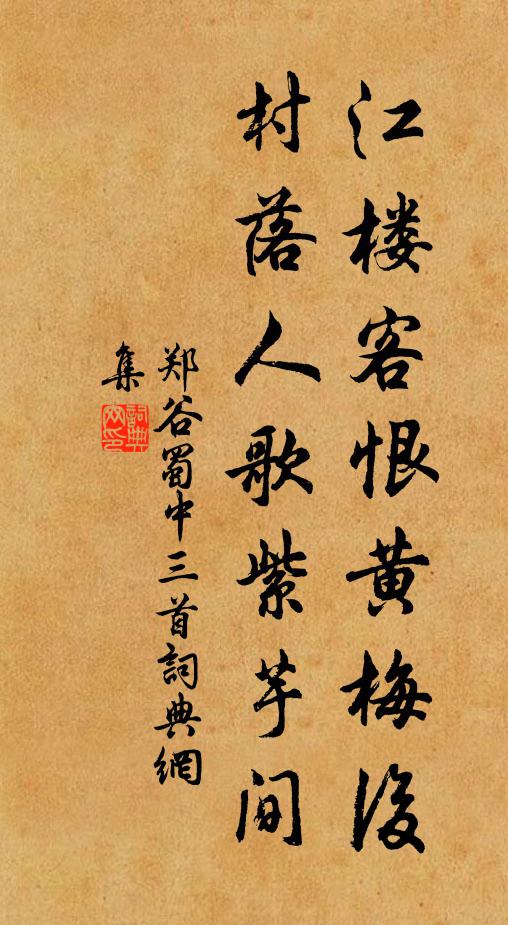 江楼客恨黄梅後
村落人歌紫芋间
郑谷蜀中三首詞典網
集
詞典網印